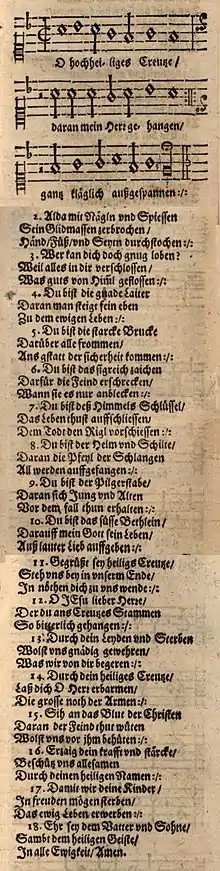 O hochhei- liges Creutze/
daran mein Herr ge- hangen/
gantz kläglich außgespannen:/:
2. Alda mit Nägln vnd Spiessen
Sein Glidmassen zerbrochen/
Händ/Füß/vnd Seytn durchstochen:/:
3. Wer kan dich doch gnug loben?
Weil alles in dir verschlossen/
Was guts von Him̃l geflossen:/:
4. Du bist die gnade Laiter
Daran man steigt fein eben
Zu dem ewigen Leben:/:
5. Du bist die starcke Brucke
Darüber alle frommen/
Ans gstatt der sicherheit kommen:/:
6. Du bist das sigreich zaichen
Darfür die Feind erschrecken/
Wann sie es nur anblecken:/:
7. Du bist deß Himmels Schlüssel/
Das Leben thust auffschliessen/
Dem Todt den Rigl vorschiessen:/:
8. Du bist der Helm vnd Schilte/
Daran die Pfeyl der Schlangen
All werden auffgefangen:/:
9. Du bist der Pilgerstabe/
Daran sich Jung vnd Alten
Vor dem fall thun erhalten:/:
10. Du bist das süsse Bethlein/
Darauff mein Gott sein Leben/
Auß lauter Lieb auffgeben:/:
11. Gegrüßt sey heiliges Creutze/
Steh vns bey in vnserm Ende/
In nöthen dich zu vns wende:/:
12. O JEsu lieber Herre/
Der du ans Creutzes Stammen
So bitterlich gehangen:/:
13. Durch dein Leyden vnd Sterben
Wolst vns gnädig gewehren/
Was wir von dir begeren:/:
14. Durch dein heiliges Creutze/
Laß dich O Herr erbarmen/
Die grosse noth der Armen:/:
15. Sih an das Blut der Christen
Daran der Feind thut wüten
Wolst vns vor jhm behüten:/:
16. Erzaig dein krafft vnd stärcke/
Beschütz vns allesamen
Durch deinen heiligen Namen:/:
17. Damit wir deine Kinder/
In freuden mögen sterben/
Das ewig Leben erwerben:/:
18. Ehr sey dem Vatter vnd Sohne/
Sambt dem heiligen Geiste/
In alle Ewigkeit/Amen.